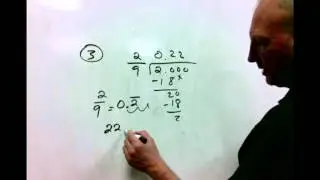 ③ 2/9 0.22
9 ) 2.000
-18
20
2/9 = 0.2̅
-18
2
22